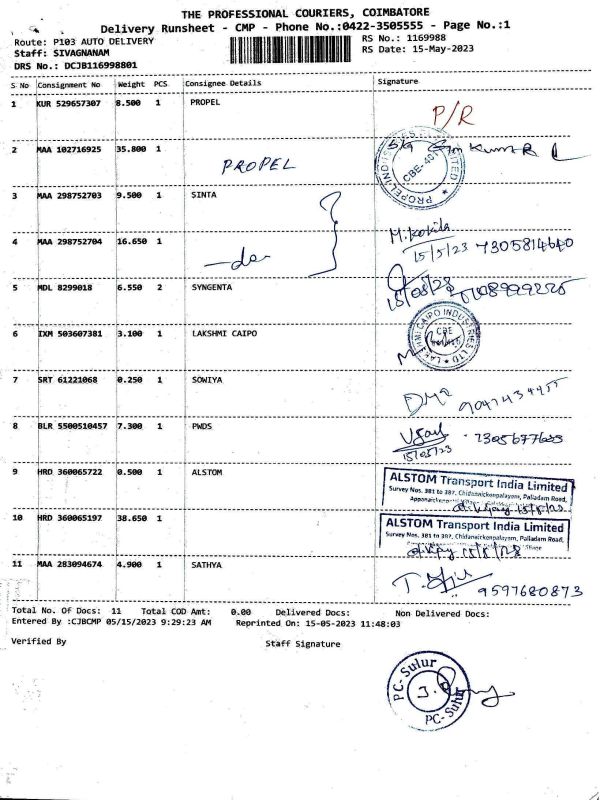 THE PROFESSIONAL COURIERS, COIMBATORE
Delivery Runsheet - CMP - Phone No.:0422-3505555 - Page No.:1
Route: P103 AUTO DELIVERY
RS No.: 1169988
Staff: SIVAGNANAM
RS Date: 15-May-2023
DRS No.: DCJB116998801
S No Consignment No Weight PCS Consignee Details Signature
1 KUR 529657307 8.500 1 PROPEL P/R
2 MAA 102716925 35.800 1 PROPEL
PROPEL INDUSTRIES LIMITED
CBE-407
3 MAA 298752703 9.500 1 SINTA
M.Kokila
15/5/23 7305814640
4 MAA 298752704 16.650 1 -do-
5 MDL 8299018 6.550 2 SYNGENTA 15/05/23
6 IXM 503607381 3.100 1 LAKSHMI CAIPO
LAKSHMI CAIPO INDUSTRIES LTD
CBE
7 SRT 61221068 0.250 1 SOWIYA
8 BLR 5500510457 7.300 1 PWDS
15/05/23
9 HRD 360065722 0.500 1 ALSTOM
ALSTOM Transport India Limited
Survey Nos. 381 to 387, Chidanvickenpalayam, Palladam Road,
10 HRD 360065197 38.650 1
ALSTOM Transport India Limited
Survey Nos. 381 to 387, Chidanvickenpalayam, Palladam Road,
11 MAA 283094674 4.900 1 SATHYA
9597680873
Total No. OF Docs: 11 Total COD Amt: 0.00 Delivered Docs: Non Delivered Docs:
Entered By :CJBCMP 05/15/2023 9:29:23 AM Reprinted On: 15-05-2023 11:48:03
Verified By Staff Signature
PC-Sulur
PC-Sulur